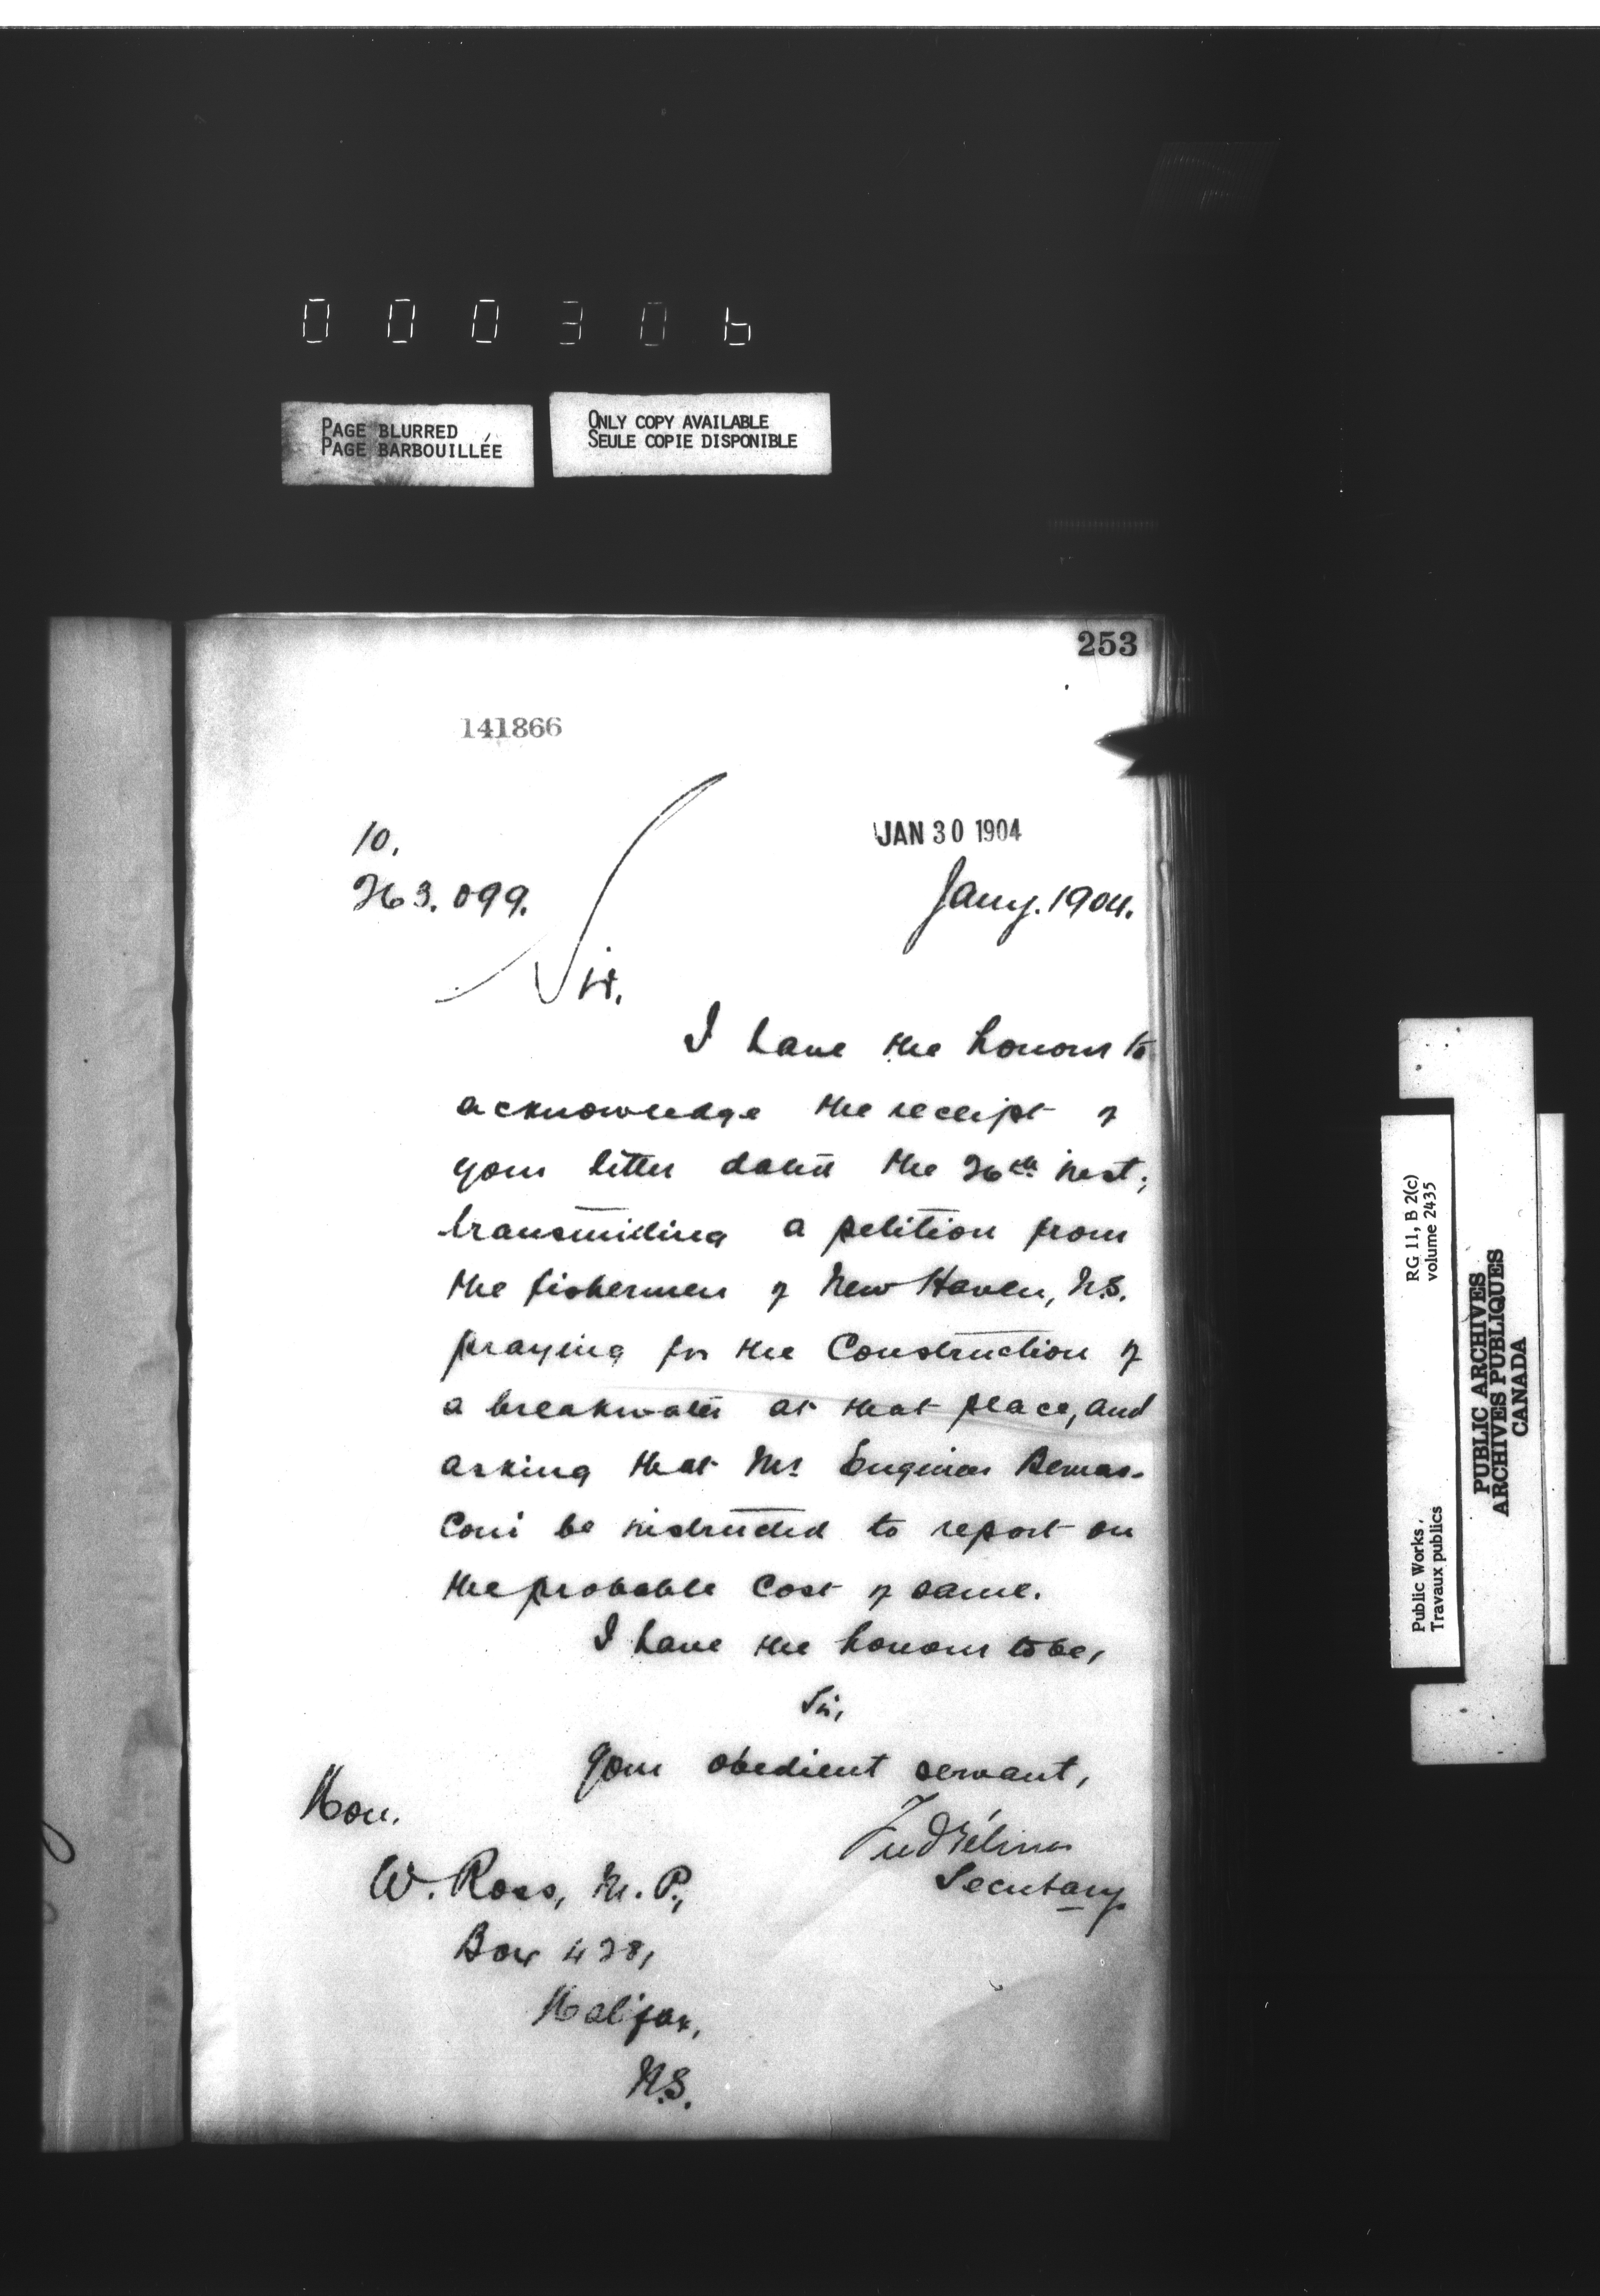 000306
PAGE BLURRED
PAGE BARBOUILLÉE
ONLY COPY AVAILABLE
SEULE COPIE DISPONIBLE
253
141866
10.
263.099.
JAN 30 1904
Jany. 1904.
Sir.
I have the honour to
acknowledge the receipt of
your letter dated the 26th inst;
transmitting a petition from
the fishermen of New Haven, N.S.
praying for the Construction of
a breakwater at that place, and
asking that Mr. Engineer Bernas-
coni be instructed to report on
the probable Cost of same.
I have the honour to be,
Sir,
Your obedient servant,
Fred Gélinas
Secretary
Hon.
W. Ross, M. P.,
Box 428,
Halifax,
N.S.
RG 11, B 2(c)
volume 2435
Public Works,
Travaux publics
PUBLIC ARCHIVES
ARCHIVES PUBLIQUES
CANADA